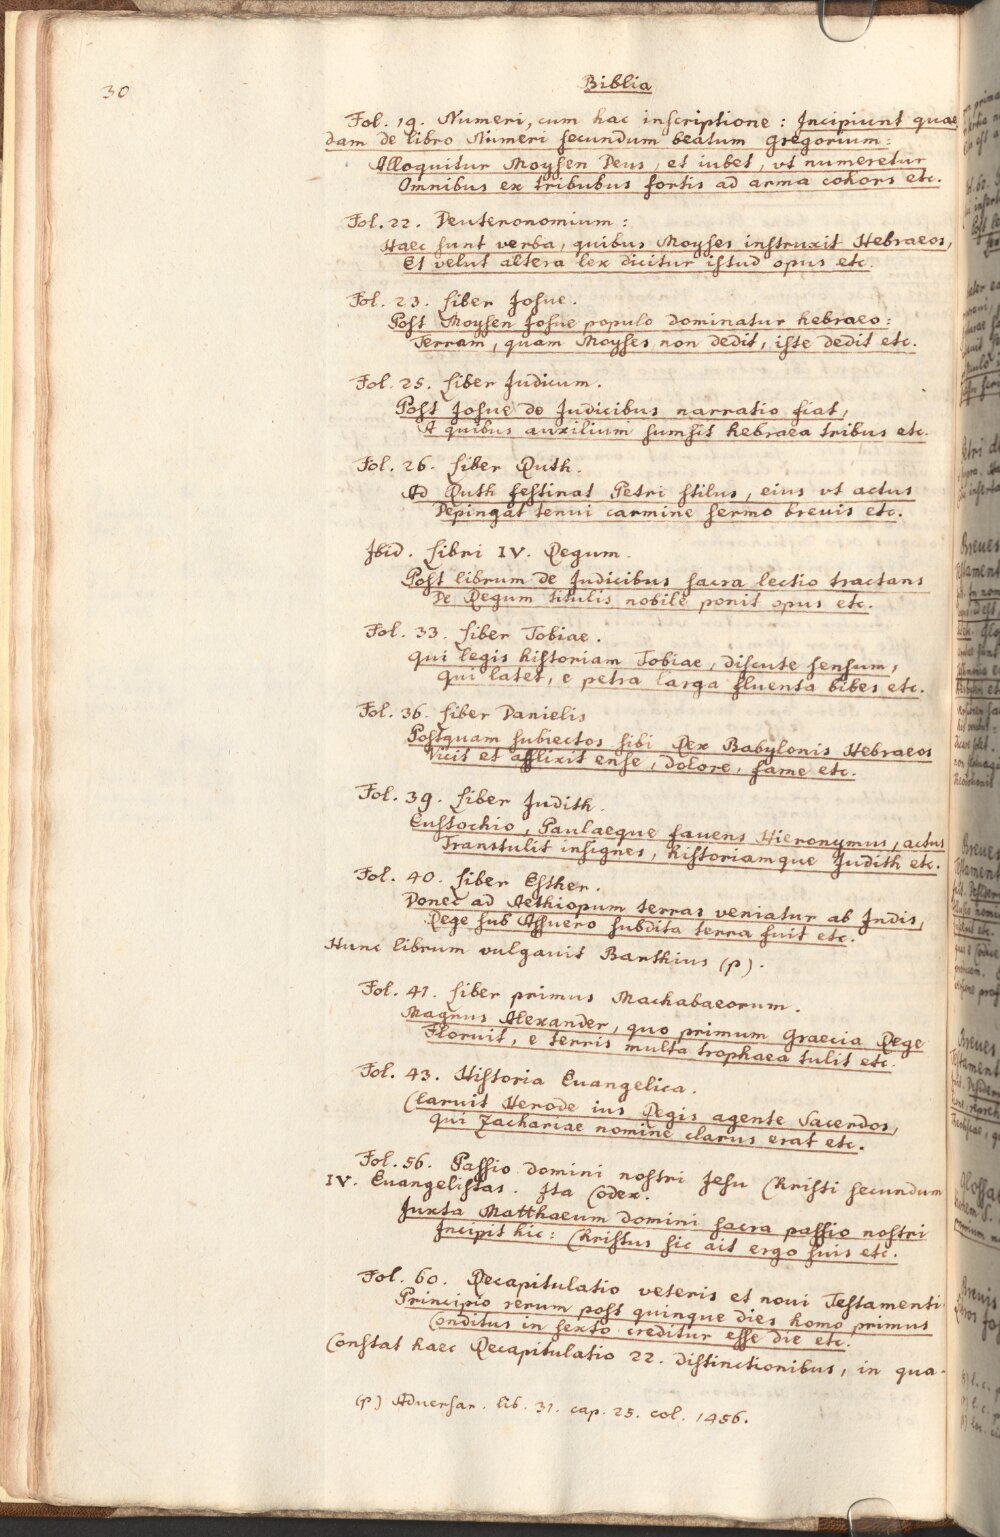 30
Biblia
Fol. 19. Numeri, cum hac inscriptione: Incipiunt quae
dam de libro Numeri secundum beatum Gregorium:
Alloquitur Moysen Deus, et iubet, vt numeretur
Omnibus ex tribubus fortis ad arma cohors etc.
Fol. 22. Deuteronomium:
Haec sunt verba, quibus Moyses instruxit Hebraeos,
Et velut altera lex dicitur istud opus etc.
Fol. 23. Liber Josue.
Post Moysen Josue populo dominatur hebraeo:
Terram, quam Moyses non dedit, iste dedit etc.
Fol. 25. Liber Judicum.
Post Josue de Judicibus narratio fiat,
A quibus auxilium sumsit hebraea tribus etc.
Fol. 26. Liber Ruth.
Ad Ruth festinat Petri stilus, eius vt actus
Depingat tenui carmine sermo breuis etc.
Ibid. Libri IV. Regum.
Post librum de Judicibus sacra lectio tractans
De Regum titulis nobile ponit opus etc.
Fol. 33. Liber Tobiae.
Qui legis historiam Tobiae, discute sensum,
Qui latet, e petra larga fluenta bibes etc.
Fol. 36. Liber Danielis
Postquam subiectos sibi Rex Babylonis Hebraeos
Vicit et afflixit ense, dolore, fame etc.
Fol. 39. Liber Judith.
Eustochio, Paulaeque fauens Hieronymus, actus
Transtulit insignes, historiamque Judith etc.
Fol. 40. Liber Esther.
Donec ad Aethiopum terras veniatur ab Indis,
Rege sub Assuero subdita terra fuit etc.
Hunc librum vulgauit Barthius (p).
Fol. 41. Liber primus Machabaeorum.
Magnus Alexander, quo primum Graecia Rege
Floruit, e terris multa trophaea tulit etc.
Fol. 43. Historia Euangelica.
Claruit Herode ius Regis agente Sacerdos,
Qui Zachariae nomine clarus erat etc.
Fol. 56. Passio domini nostri Jesu Christi secundum
IV. Euangelistas. Ita Codex.
Juxta Matthaeum domini sacra passio nostri
Incipit hic: Christus sic ait ergo suis etc.
Fol. 60. Recapitulatio veteris et noui Testamenti
Principio rerum post quinque dies homo primus
Conditus in sexto creditur esse die etc.
Constat haec Recapitulatio 22. distinctionibus, in qua-
(p) Aduersar. lib. 31. cap. 25. col. 1456.